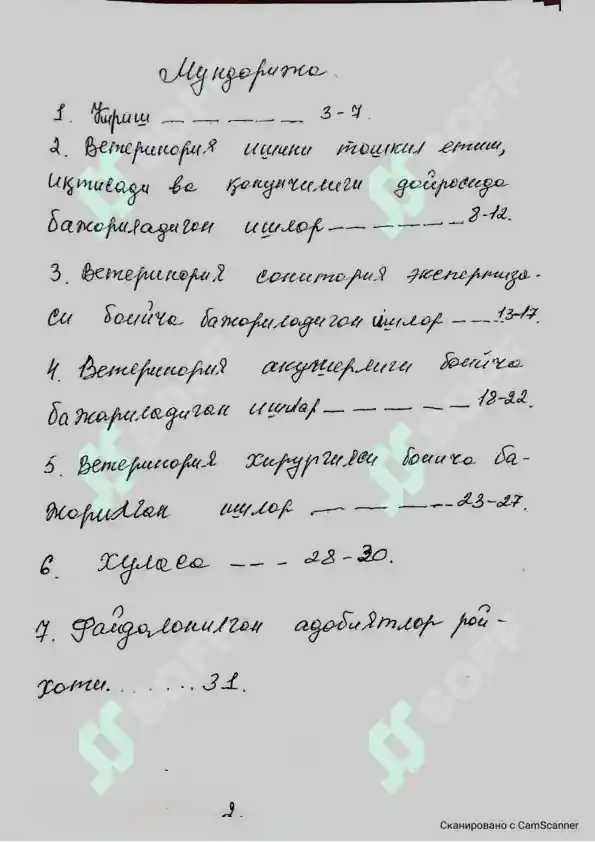 Мундорижа.
1. Кириш — — — — — 3-7.
2. Ветеринория ишини тошкил етиш,
иқтисади ва қонунчилиги дойросида
бажориладигон ишлор — — — — — — 8-12.
3. Ветеринория сонитория экспертиза-
си бойича бажориладигон ишлор — — 13-17.
4. Ветеринория акушерлиги бойича
бажариладиган ишлар — — — — — 18-22.
5. Ветеринория хирургияси бойича ба-
жорилган ишлор — — — — — 23-27.
6. Хулоса — — - 28-30.
7. Файдалонилгон адобиятлор рой-
хоти. . . . . . . 31.
2.
Сканировано с CamScanner
SOFF
SOFF
SOFF
SOFF
SOFF
SOFF